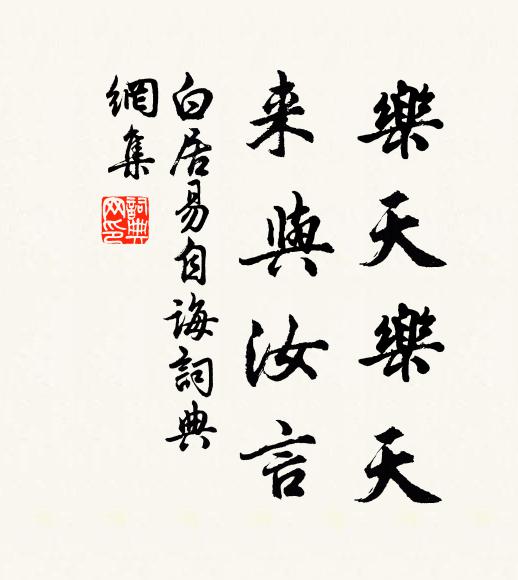 樂天樂天
来與汝言
白居易自誨詞典
網集
詞典
网印